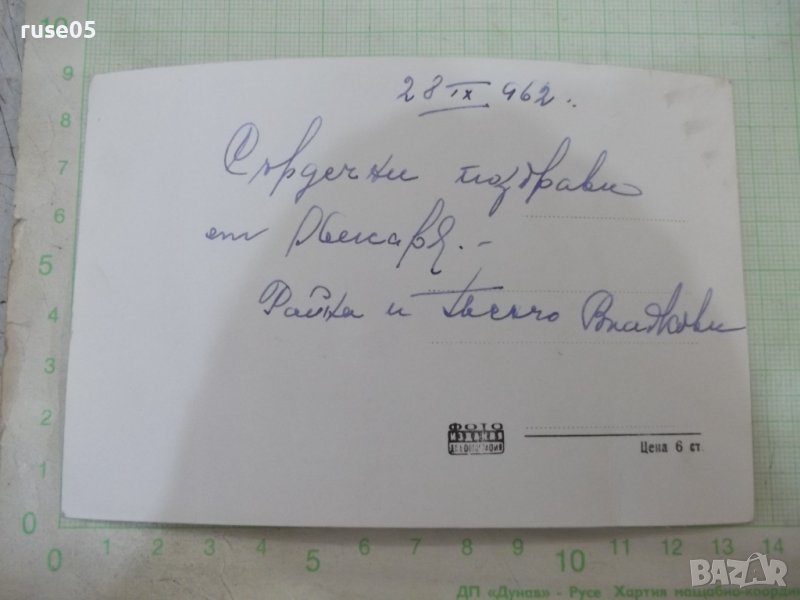 ruse05
28 IX 962..
Сърдечни поздрави
от
Райна и Владкови
ФОТО
ИЗДАНИЯ
Цена 6 ст.
10
9
8
7
6
5
4
3
2
1
0
0 1 2 3 4 5 6 7 8 9 10 11 12 13 14
ДП «Дунав» - Русе Хартия мащабно-координ
BAZAR